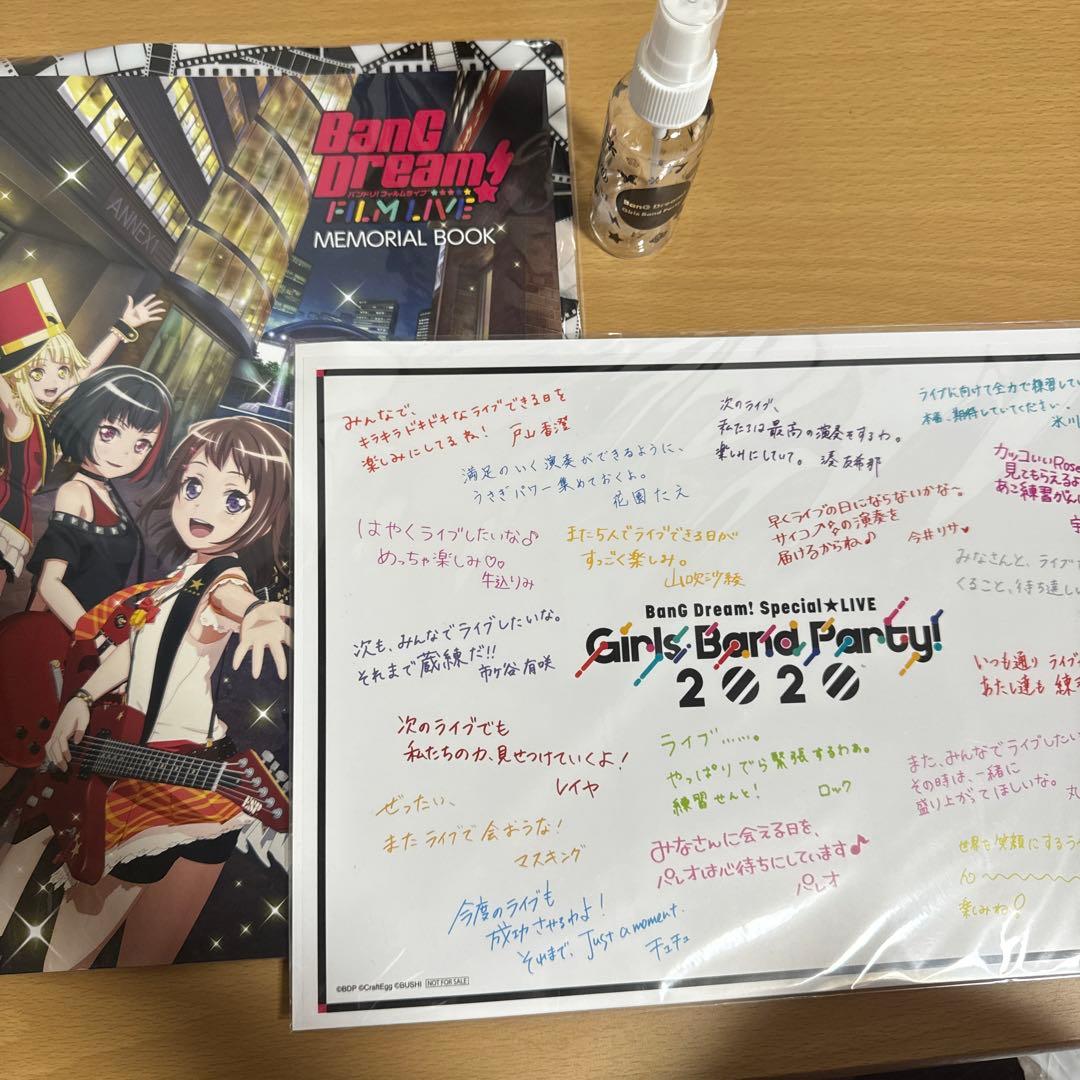 ANNEX1
BanG
Dream!
バンドリ! フィルムライブ
FILM LIVE
MEMORIAL BOOK
BanG Dream!
Girls Band
みんなで、
キラキラドキドキなライブできる日を
楽しみにしてるね! 戸山香澄
満足のいく演奏ができるように、
うさぎパワー集めておくよ。
花園たえ
はやくライブしたいな♪
めっちゃ楽しみ♡♡
牛込りみ
また5人でライブできる日が
すっごく楽しみ。
山吹沙綾
次も、みんなでライブしたいな。
それまで蔵練だ!!
市ヶ谷有咲
次のライブ、
私たちは最高の演奏をするわ。
楽しみにしていて。 湊友希那
ライブに向けて全力で練習してい
本番、期待していてください。
氷川
早くライブの日にならないかな〜。
サイコーの演奏を
届けるからね♪ 今井リサ♥
カッコいいRose
見てもらえるよ
あこ練習がん
宇
みなさんと、ライブ
くること、待ち遠しい
BanG Dream! Special★LIVE
Girls Band Party!
2020
いつも通り ライブ
あたし達も 練
次のライブでも
私たちの力、見せつけていくよ!
レイヤ
ぜったい、
またライブで会おうな!
マスキング
ライブ……。
やっぱりでら緊張するわぁ。
練習せんと! ロック
みなさんに会える日を、
パレオは心待ちにしています♪
パレオ
今度のライブも
成功させるわよ!
それまで、Just a moment.
チュチュ
また、みんなでライブしたい
その時は、一緒に
盛り上がってほしいな。 丸
世界を笑顔にするラ
楽しみね!
©BDP ©CraftEgg ©BUSHI NOT FOR SALE
ESP